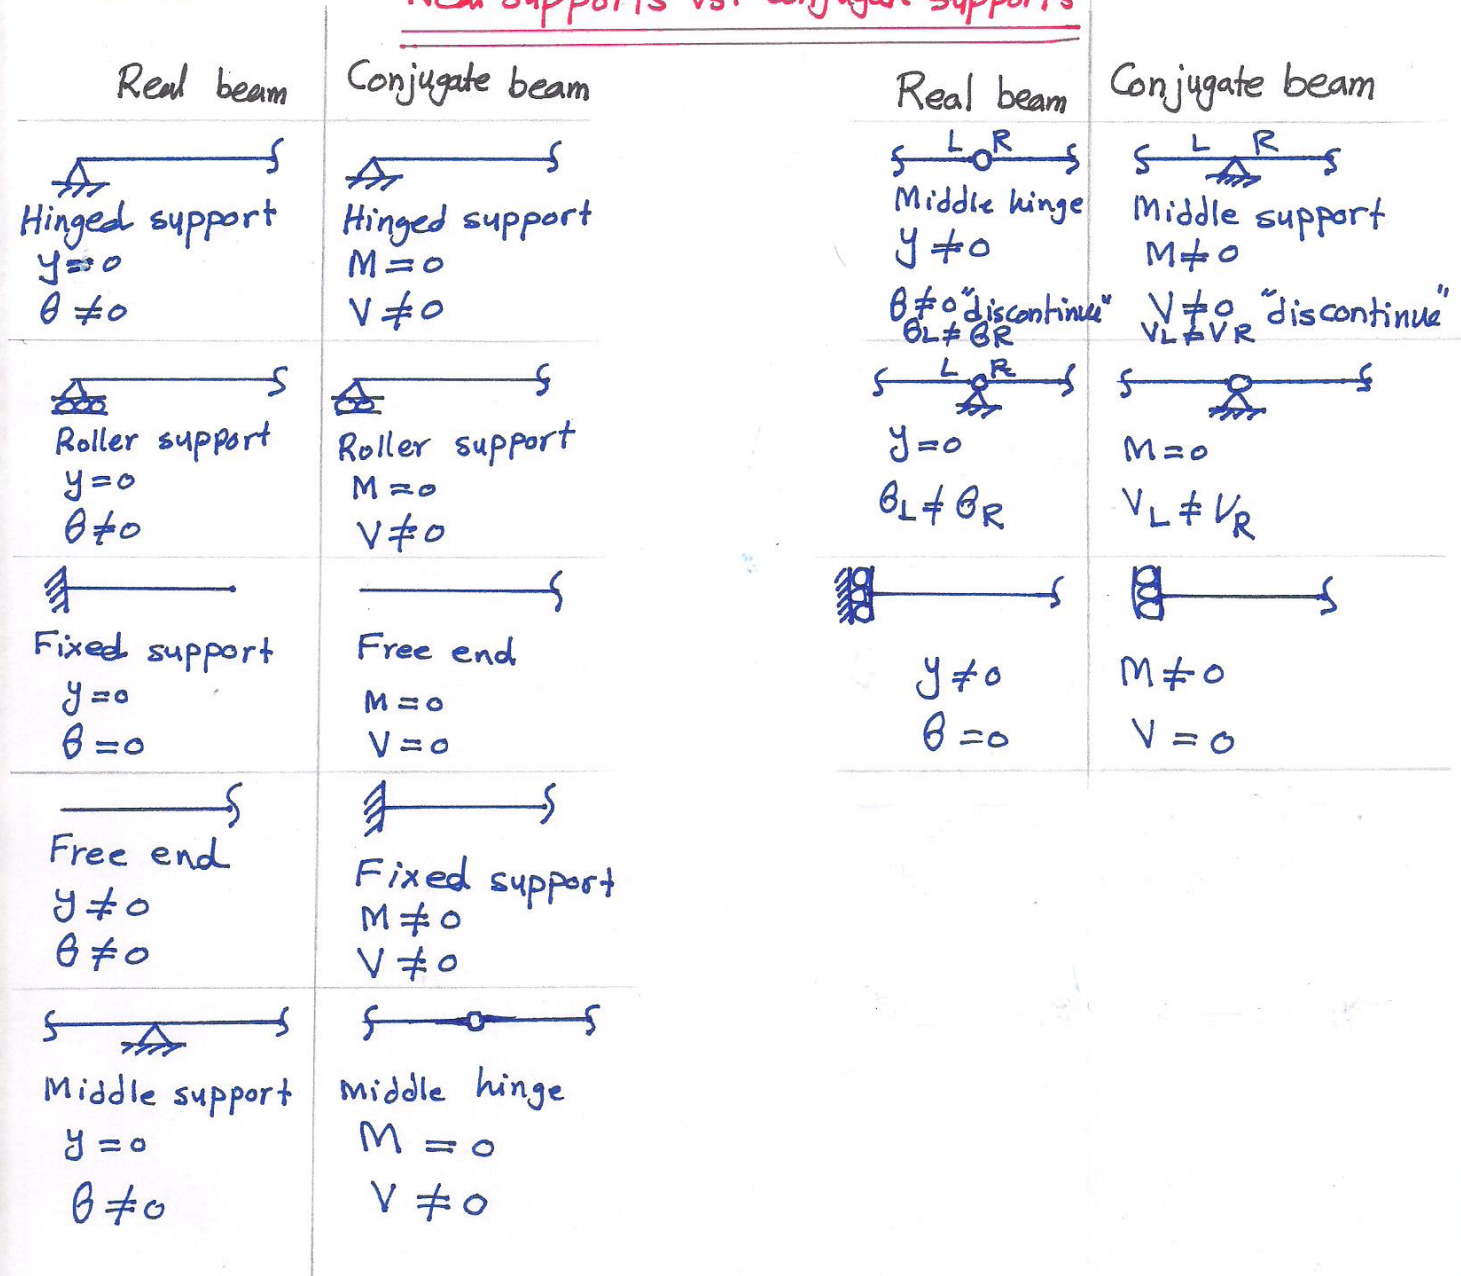 Real supports vs. Conjugate supports
Real beam
Conjugate beam
Hinged support
y=0
θ≠0
Hinged support
M=0
V≠0
Roller support
y=0
θ≠0
Roller support
M=0
V≠0
Fixed support
y=0
θ=0
Free end
M=0
V=0
Free end
y≠0
θ≠0
Fixed support
M≠0
V≠0
Middle support
y=0
θ≠0
Middle hinge
M=0
V≠0
Real beam
Conjugate beam
L R
Middle hinge
y≠0
θ≠0 "discontinue"
θL≠θR
L R
Middle support
M≠0
V≠0 "discontinue"
VL≠VR
L R
y=0
θL≠θR
M=0
VL≠VR
y≠0
θ=0
M≠0
V=0